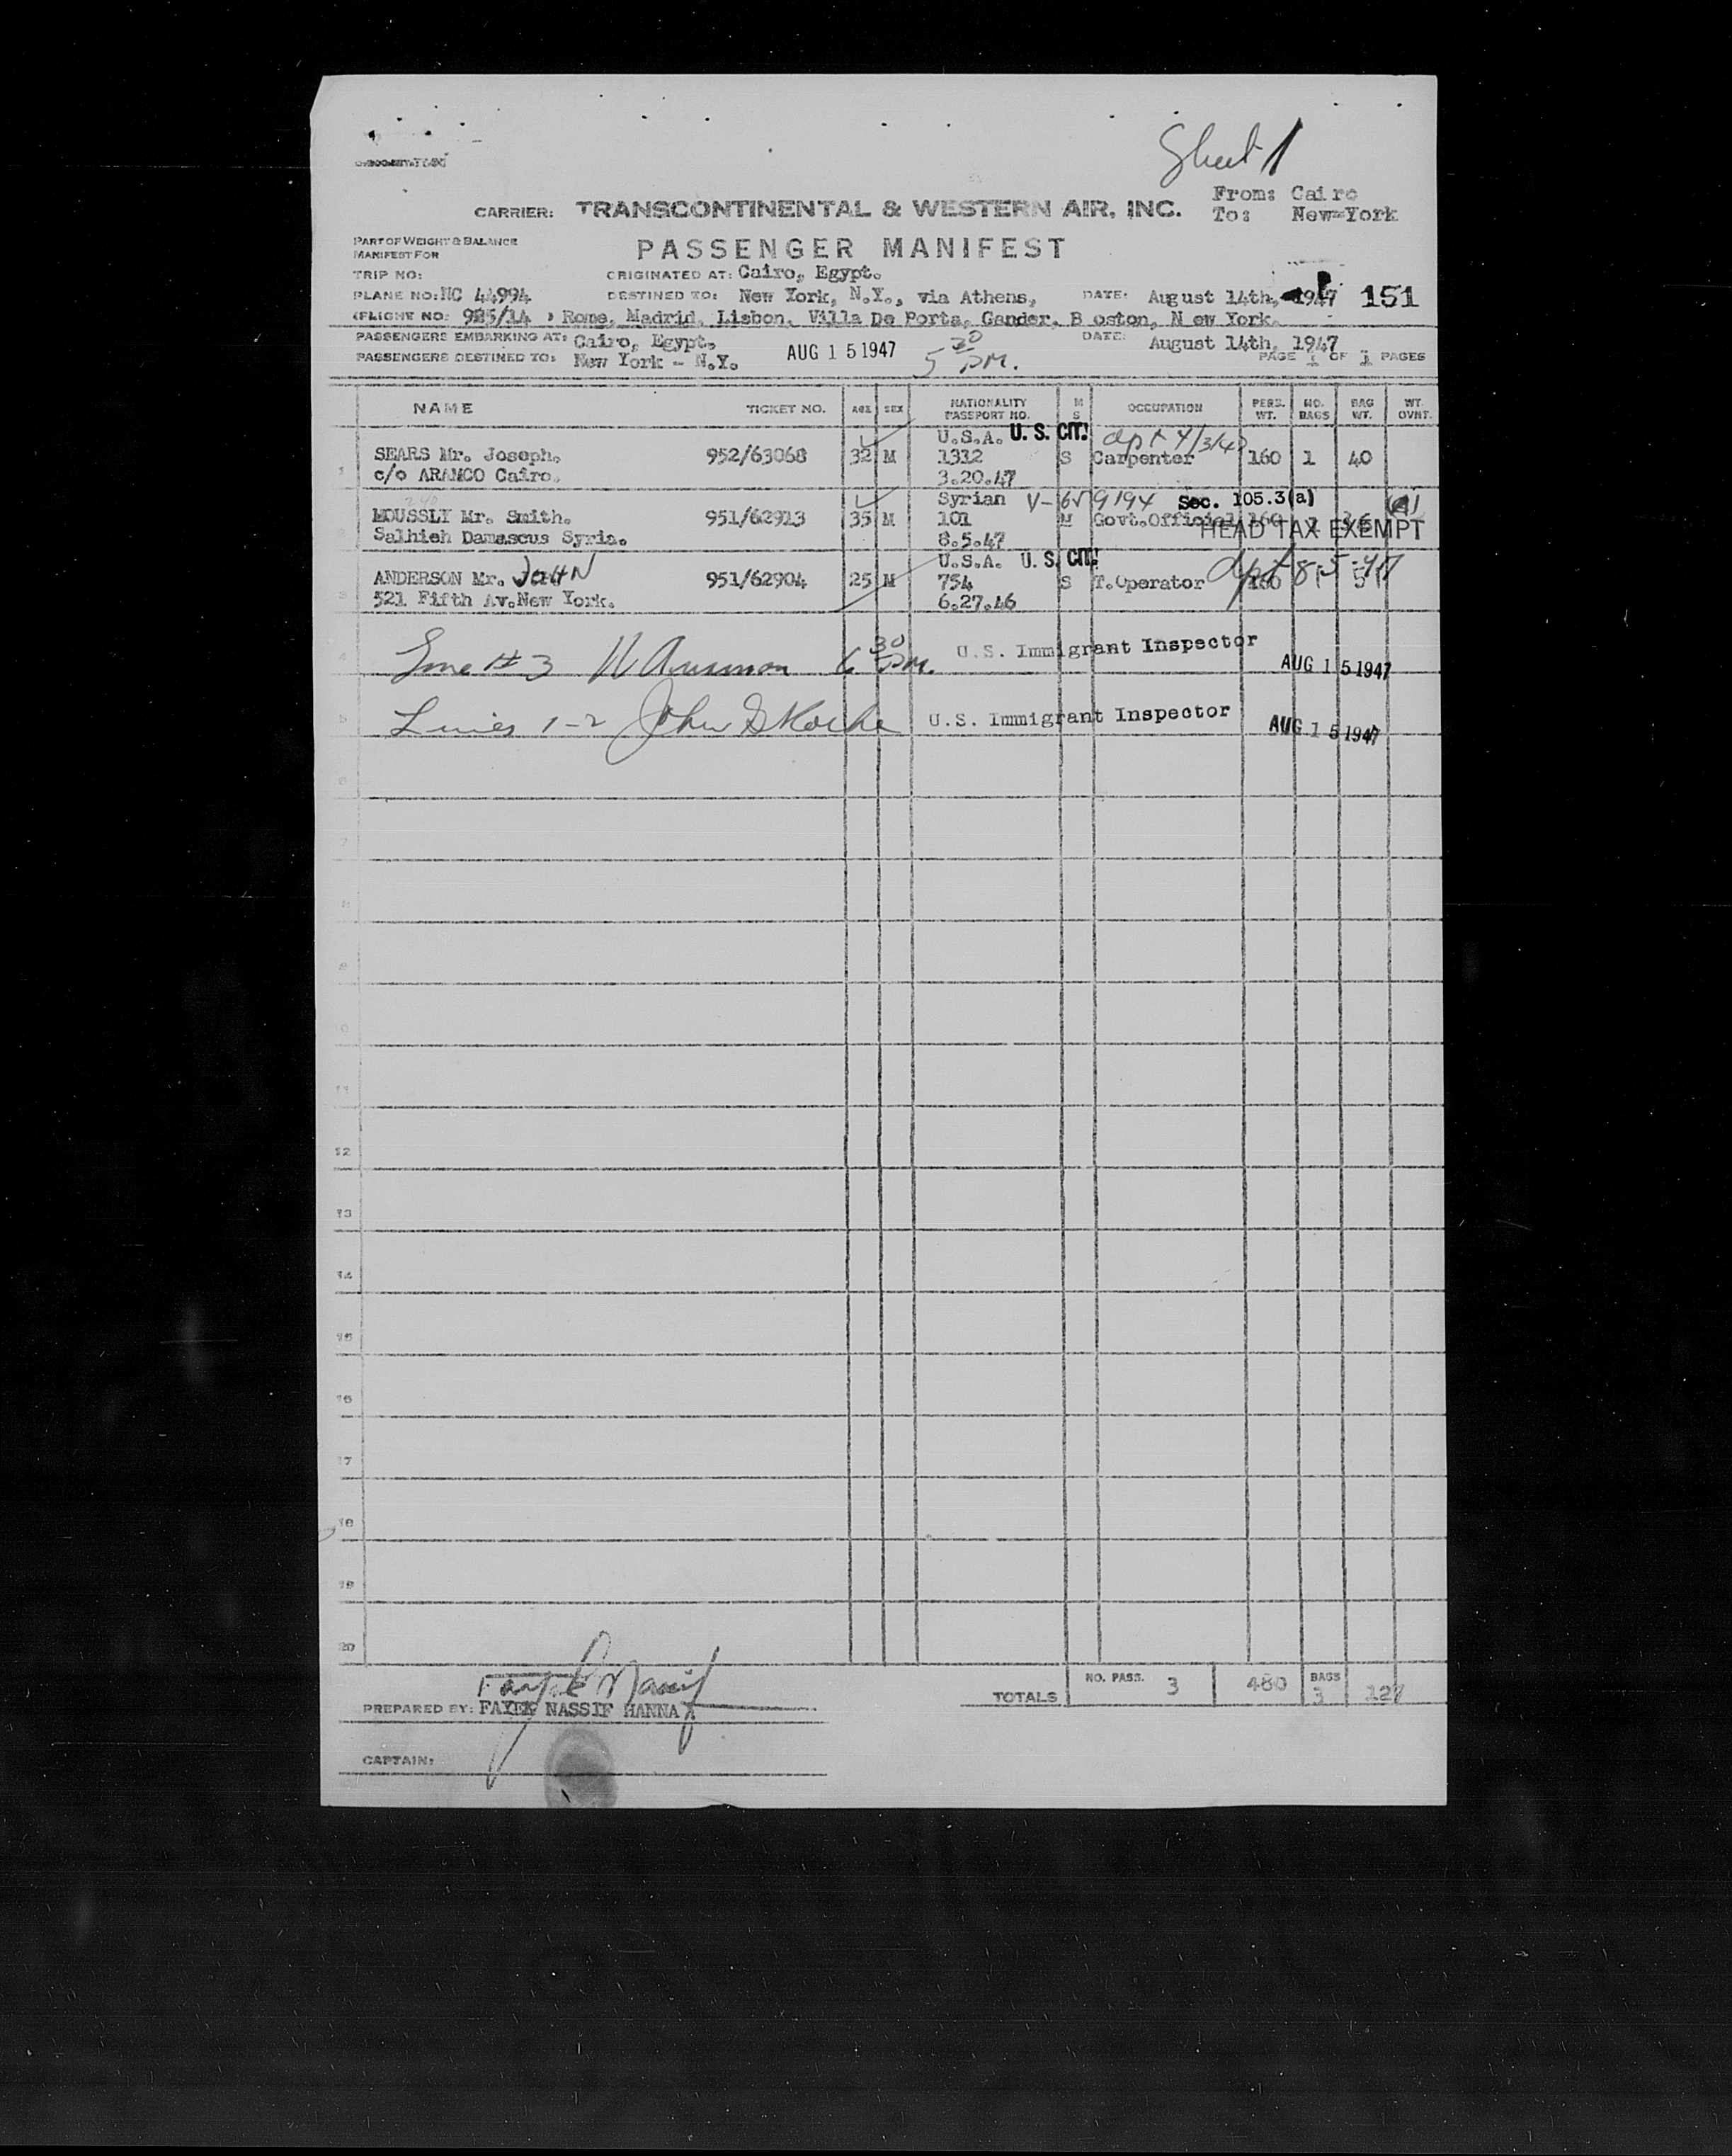 Sheet 1
From: Cairo
To: New-York
CARRIER: TRANSCONTINENTAL & WESTERN AIR, INC.
PART OF WEIGHT & BALANCE
MANIFEST FOR
PASSENGER MANIFEST
TRIP NO: ORIGINATED AT: Cairo, Egypt.
PLANE NO: NC 44994 DESTINED TO: New York, N.Y., via Athens, DATE: August 14th, 1947 151
(FLIGHT NO: 925/14 , Rome, Madrid, Lisbon, Villa De Porta, Gander, B oston, N ew York.
PASSENGERS EMBARKING AT: Cairo, Egypt. DATE: August 14th, 1947
PASSENGERS DESTINED TO: New York - N.Y. AUG 15 1947 5 30 PM. PAGE 1 OF 1 PAGES
NAME TICKET NO. AGE SEX NATIONALITY PASSPORT NO. M S OCCUPATION PERS. WT. NO. BAGS BAG WT. WT. OVHT.
U.S.A. U. S. CIT!
1 SEARS Mr. Joseph. 952/63068 32 M 1312 S Carpenter 160 1 40
c/o ARAMCO Cairo. 3.20.47
Syrian V-659194 Sec. 105.3(a)
MOUSSLY Mr. Smith. 951/62913 35 M 101 M Govt.Official 160
Salhieh Damascus Syria. 8.5.47 HEAD TAX EXEMPT
U.S.A. U. S. CIT!
3 ANDERSON Mr. JOHN 951/62904 25 M 754 S T.Operator 160
521 Fifth Av.New York. 6.27.46
4 Line #3 6 30 PM. U.S. Immigrant Inspector AUG 15 1947
5 Lines 1-2 John U.S. Immigrant Inspector AUG 15 1947
6
7
8
9
10
11
12
13
14
15
16
17
18
19
20
TOTALS NO. PASS. 3 480 BAGS 3 127
PREPARED BY: FAYEK NASSIF HANNA
CAPTAIN: